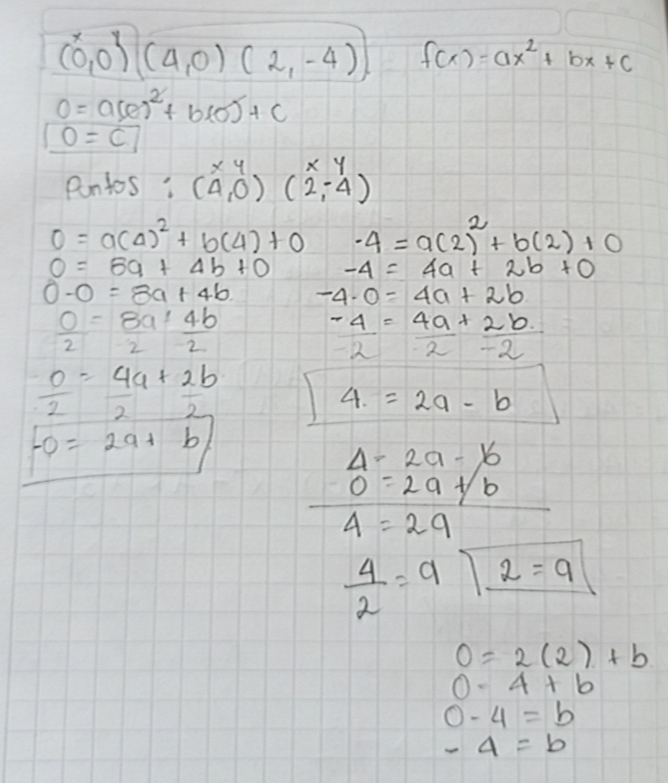 x y
(0,0) (4,0) (2,-4) f(x)=ax² + bx + c
0 = a(0)² + b(0) + c
0 = c
x y x y
Puntos : (4,0) (2,-4)
0 = a(4)² + b(4) + 0
0 = 8a + 4b + 0
0-0 = 8a + 4b
0 = 8a + 4b
2 2 2
0 = 4a + 2b
2 2 2
-0 = 2a + b
-4 = a(2)² + b(2) + 0
-4 = 4a + 2b + 0
-4-0 = 4a + 2b
-4 = 4a + 2b
-2 -2 -2
4 = 2a - b
4 = 2a - b
0 = 2a + b
4 = 2a
4 = a 2 = a
2
0 = 2(2) + b
0 - 4 + b
0 - 4 = b
- 4 = b